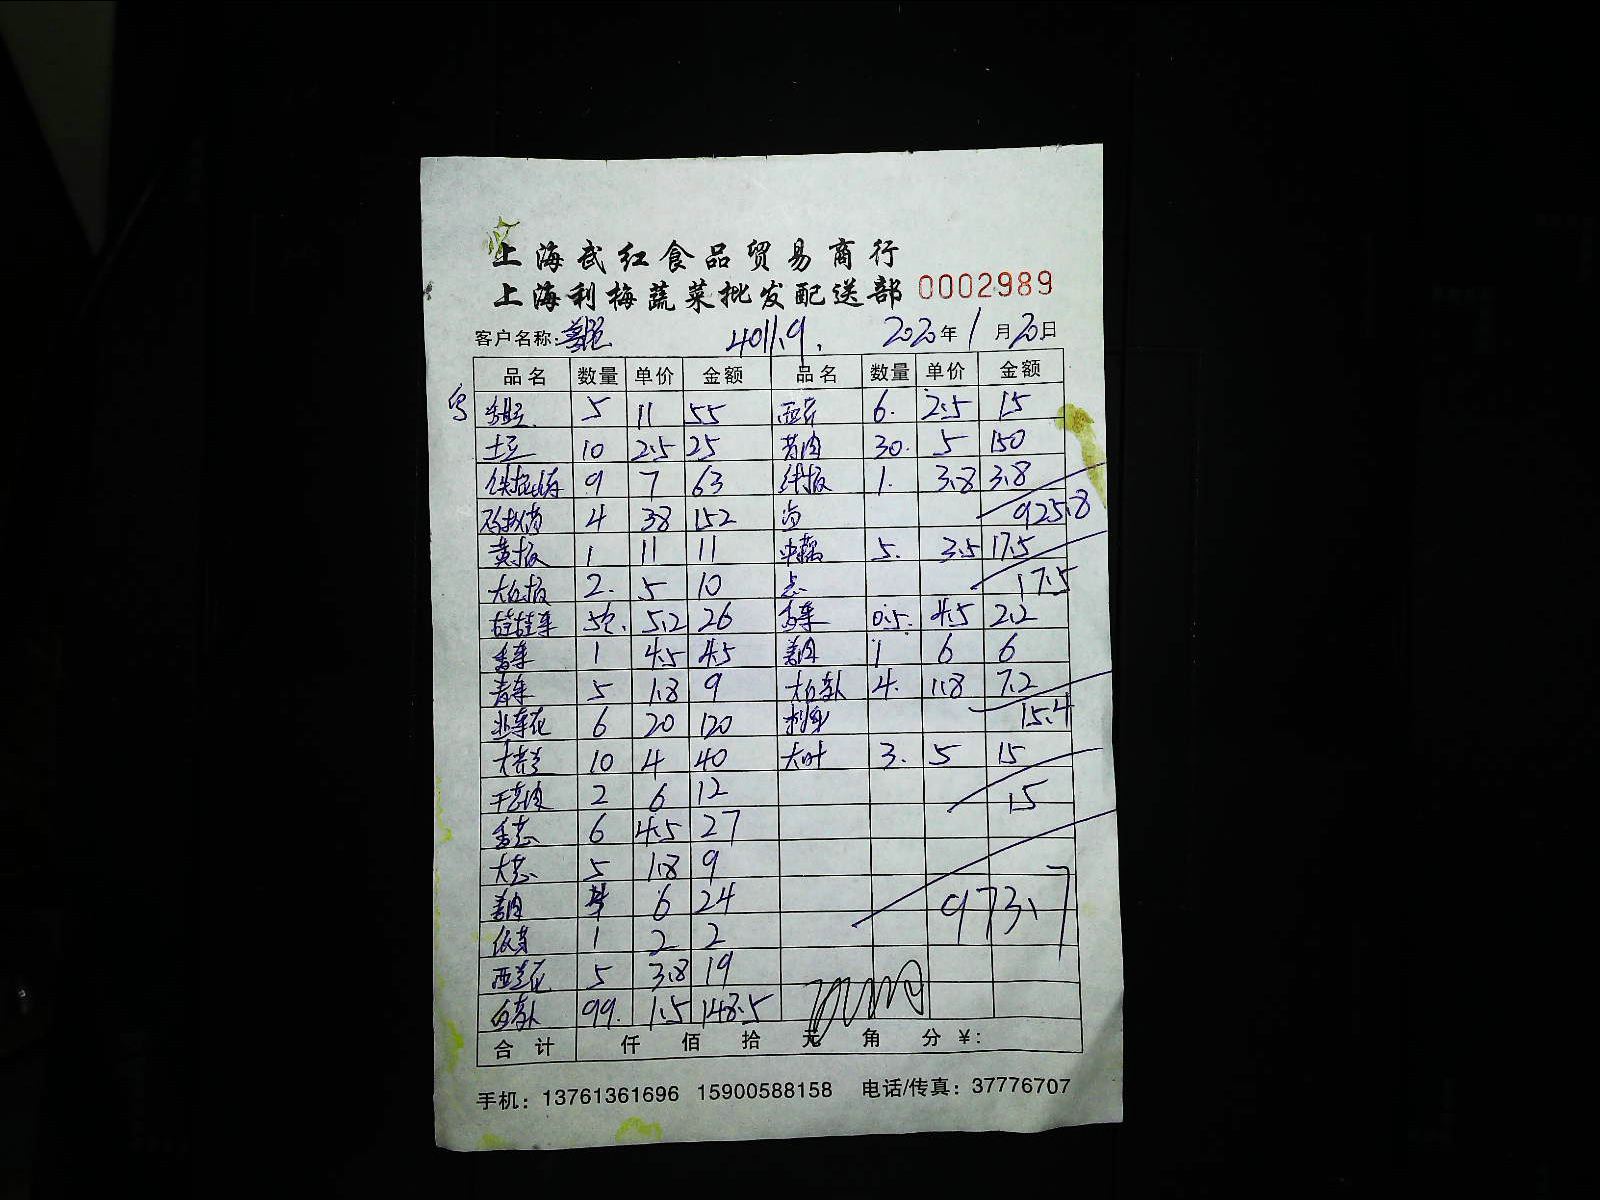 上海武红食品贸易商行
上海利梅蔬菜批发配送部 0002989
客户名称: 4011.9. 2020年1月20日
品名 数量 单价 金额 品名 数量 单价 金额
5 11 55 西芹 6. 2.5 15
土豆 10 2.5 25 30. 5 150
9 7 63 1. 3.8 3.8
4 38 152 925.8
黄椒 1 11 11 5. 3.5 17.5
2. 5 10 点 17.5
娃娃菜 5.2 26 香菜 0.5. 4.5 2.2
香菜 1 4.5 4.5 姜肉 1 6 6
青菜 5 1.8 9 大白萝卜 4. 1.8 7.2
韭菜花 6 20 120 15.4
10 4 40 大叶 3. 5 15
2 6 12 15
香葱 6 4.5 27
大葱 5 1.8 9
姜肉 4 6 24 973.7
1 2 2
西兰花 5 3.8 19
白萝卜 99. 1.5 148.5
合计 仟 佰 拾 元 角 分 ¥:
手机: 13761361696 15900588158 电话/传真: 37776707